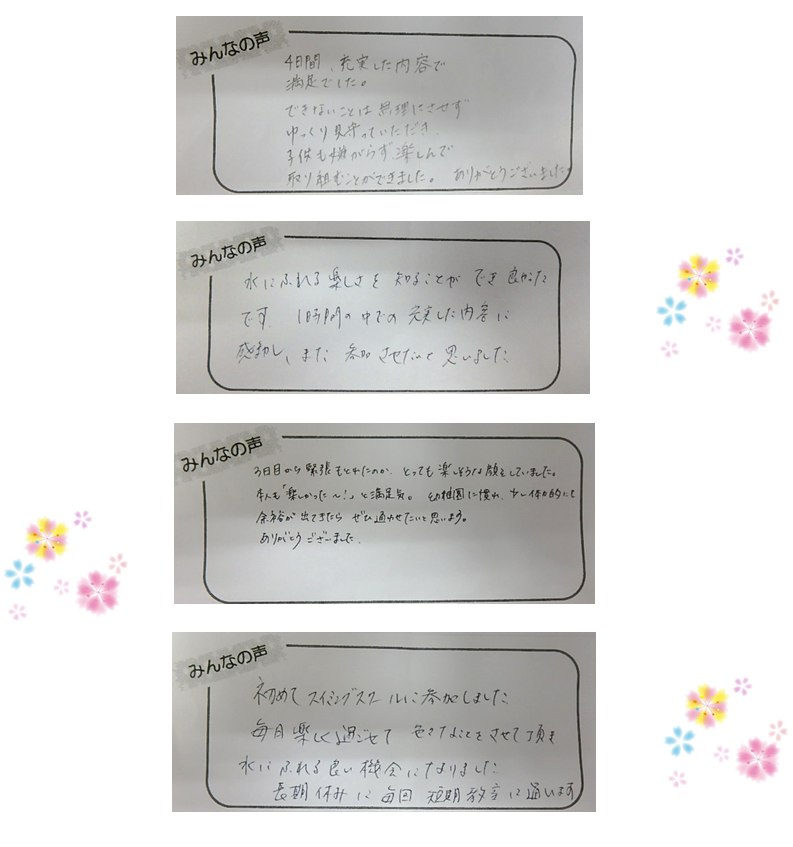 みんなの声
4日間、充実した内容で
満足でした。
できないことは無理にさせず
ゆっくり見守っていただき、
子供も嫌がらず楽しんで
取り組むことができました。ありがとうございました。
みんなの声
水にふれる楽しさを知ることができ良かった
です。1時間の中での充実した内容に
感動し、また参加させたいと思いました
みんなの声
3日目から緊張もとれたのか、とっても楽しそうな顔をしていました。
本人も「楽しかった〜!」と満足気。幼稚園に慣れ、少し体力的にも
余裕が出てきたらぜひ通わせたいと思います。
ありがとうございました。
みんなの声
初めてスイミングスクールに参加しました
毎日楽しく過ごせて色々なことをさせて頂き
水にふれる良い機会になりました
長期休みに毎回短期教室に通います